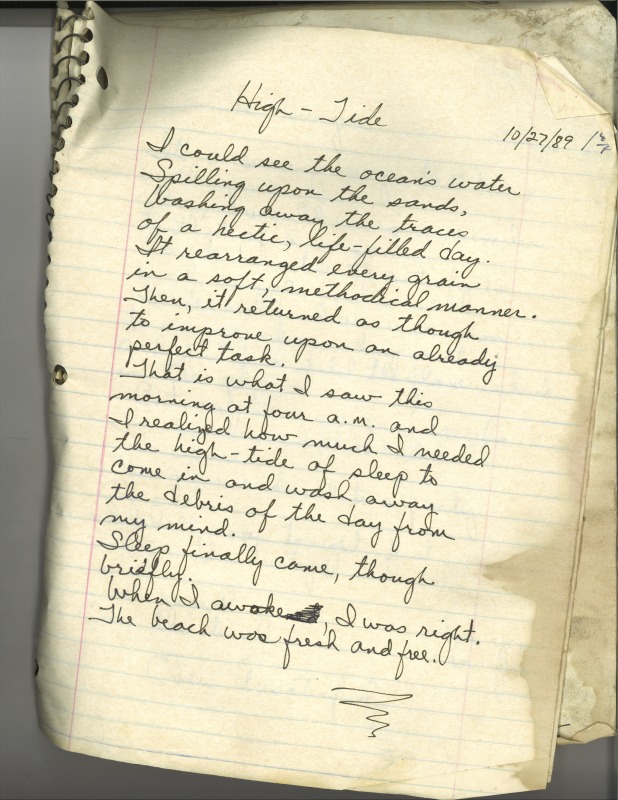 High - Tide
10/27/89
I could see the ocean's water
Spilling upon the sands,
Washing away the traces
of a hectic, life-filled day.
It rearranged every grain
in a soft, methodical manner.
Then, it returned as though
to improve upon an already
perfect task.
That is what I saw this
morning at four a.m. and
I realized how much I needed
the high-tide of sleep to
come in and wash away
the debris of the day from
my mind.
Sleep finally came, though
briefly.
When I awoke, I was right.
The beach was fresh and free.